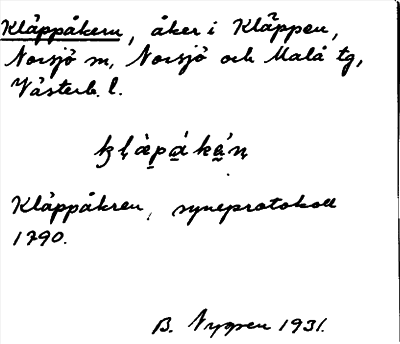 Kläppåkern, åker i Kläppen,
Norsjö sn, Norsjö och Malå tg,
Västerb. l.
Kläppåkren, syneprotokoll
1790.
B. Nygren 1931.